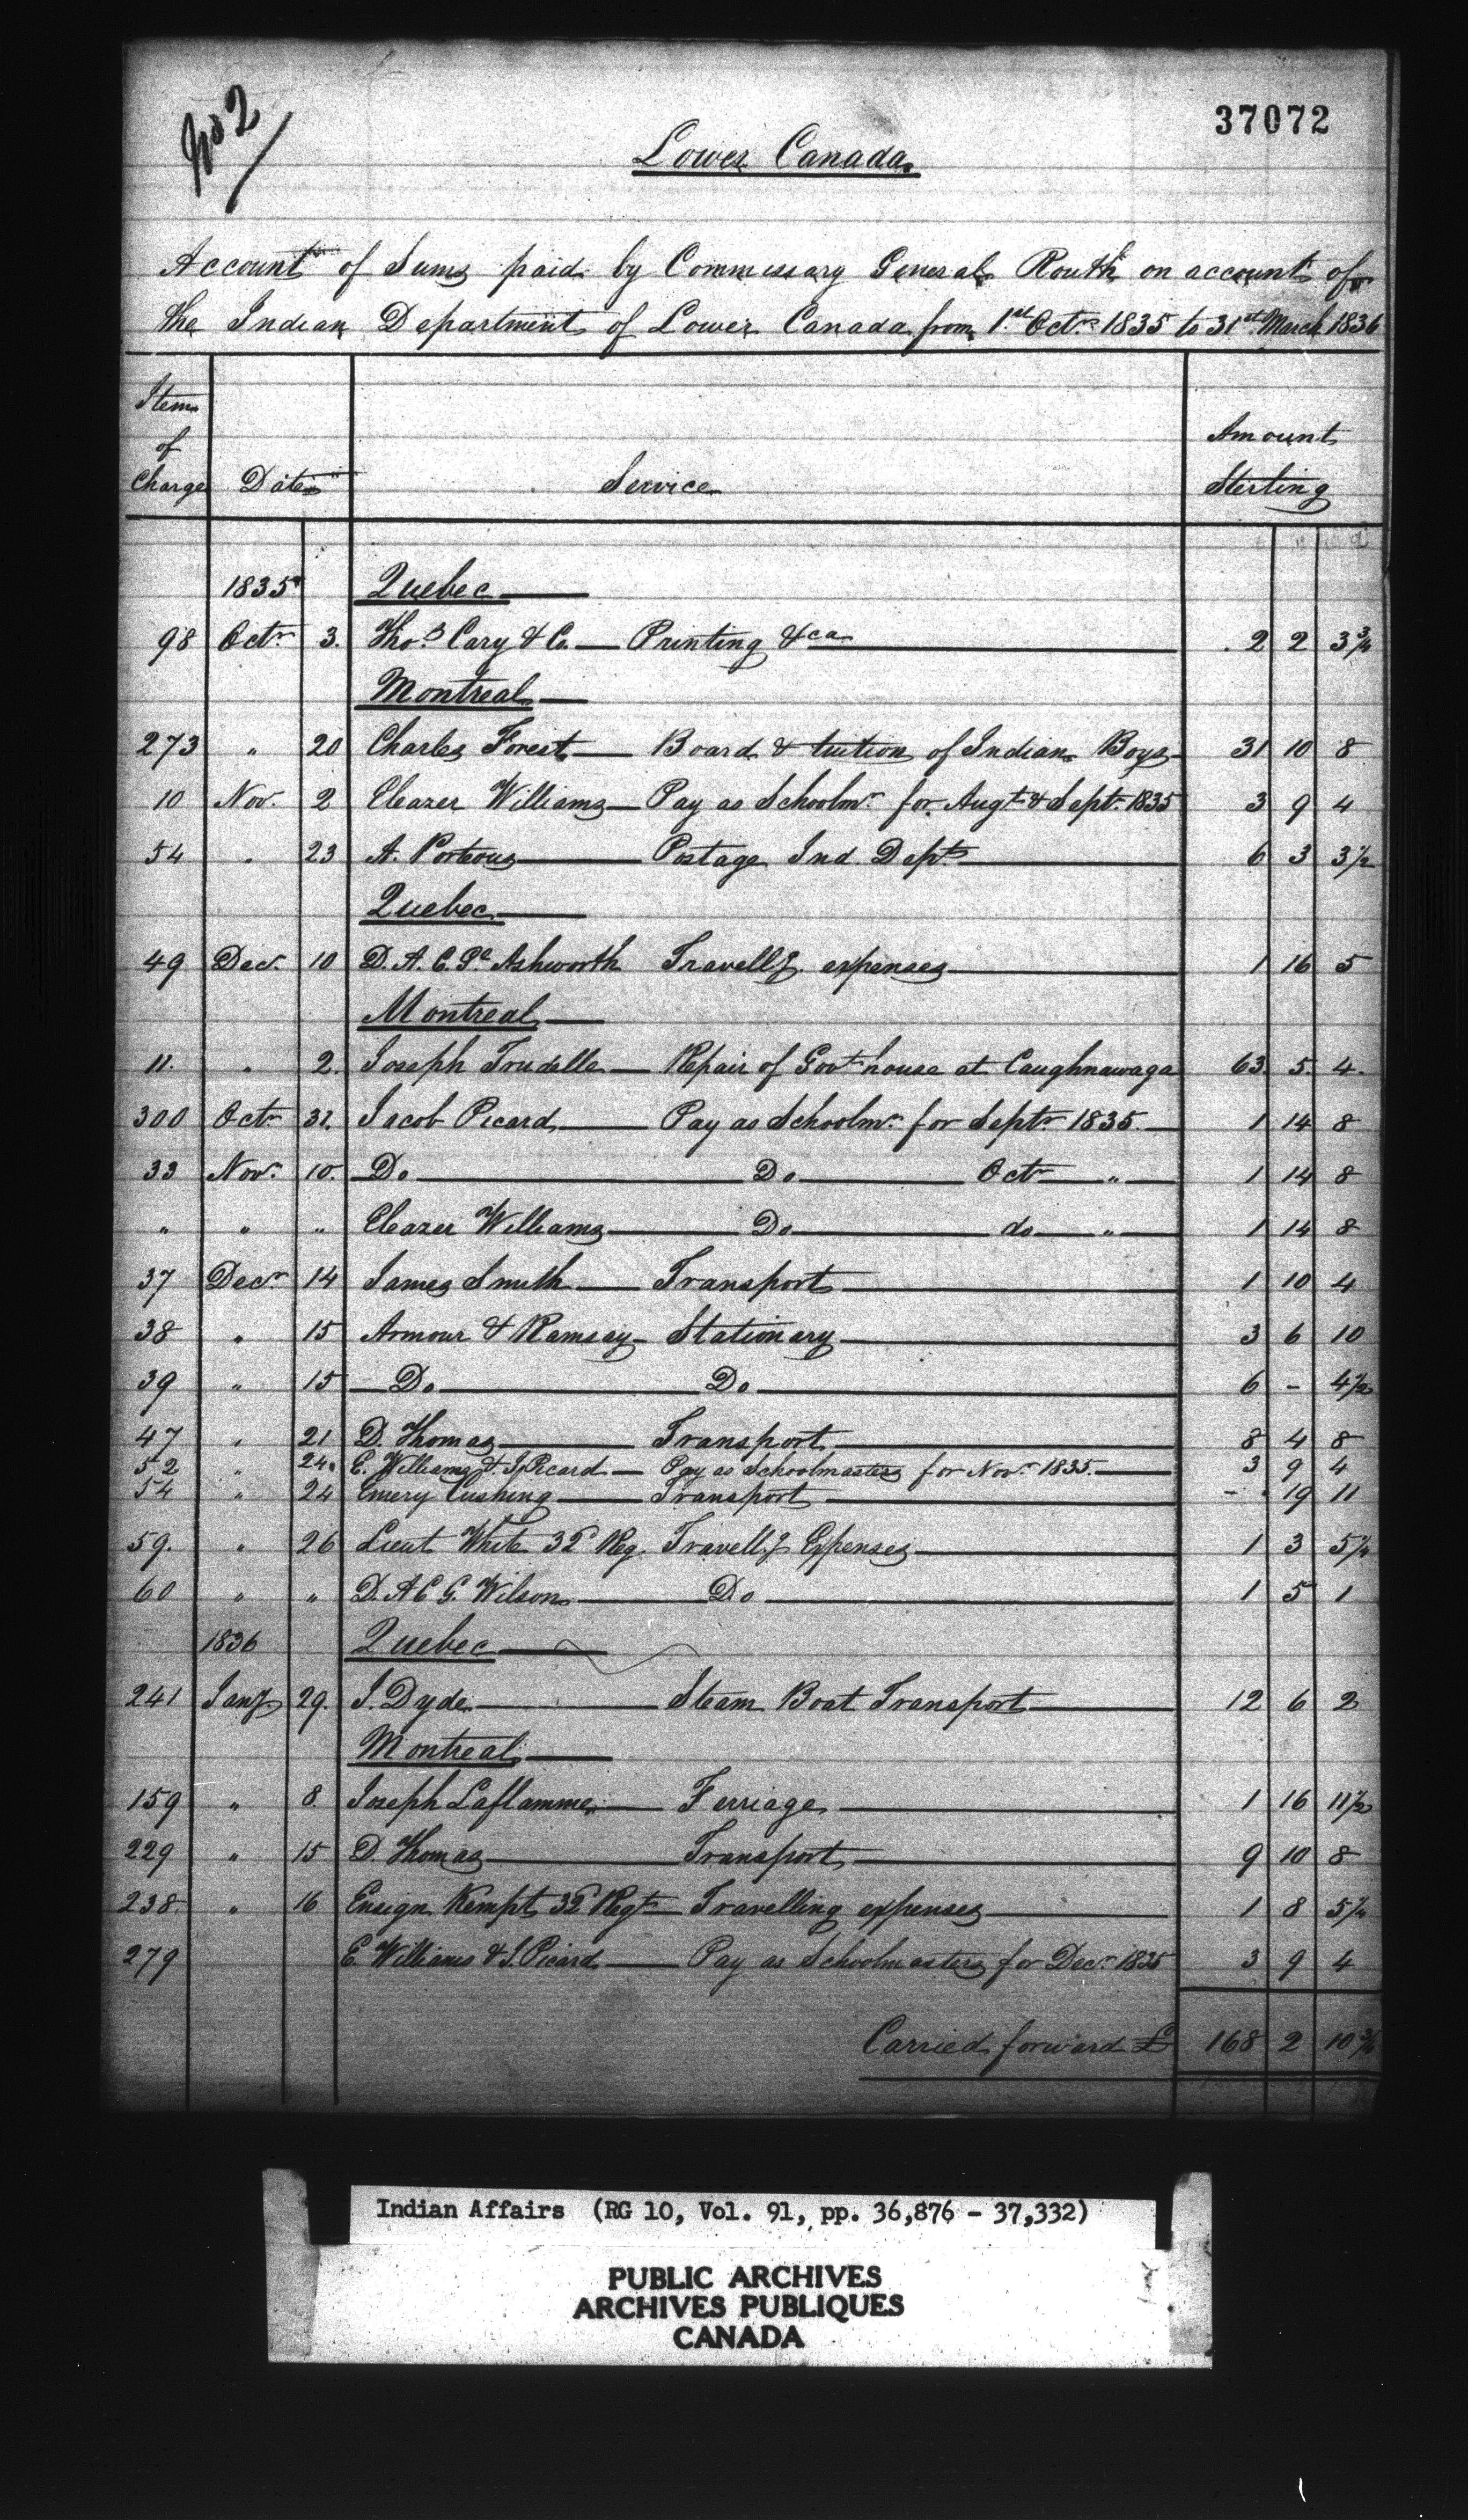 402
37072
Lower Canada
Account of Sums paid by Commissary General Routh on account of
the Indian Department of Lower Canada from 1st Octr 1835 to 31st March 1836
Item of Charge Date Service Amount Sterling
1835 Quebec
98 Octr 3. Thos Cary & Co. Printing &ca 2 2 3 3/4
Montreal
273 " 20 Charles Forest Board & tuition of Indian Boys 31 10 8
10 Novr 2 Eleazer Williams Pay as Schoolmr for Augt & Septr 1835 3 9 4
54 " 23 A. Porteous Postage Ind. Dept 6 3 3 1/2
Quebec
49 Decr 10 D. A. C. Gl Ashworth Travellg. expenses 1 16 5
Montreal
11. " 2. Joseph Trudelle Repair of Govt house at Caughnawaga 63. 5. 4.
300 Octr 31. Jacob Picard Pay as Schoolmr for Septr 1835. 1 14 8
33 Novr 10. Do Do Octr " 1 14 8
" " " Eleazer Williams Do do " 1 14 8
37 Decr 14 James Smith Transport 1 10 4
38 " 15 Armour & Ramsay Stationary 3 6 10
39 " 15 Do Do 6 - 4 1/2
47 " 21 D. Thomas Transport 8 4 8
52 " 24 E. Williams & J. Picard Pay as Schoolmasters for Novr 1835. 3 9 4
54 " 24 Emery Cushing Transport - 19 11
59. " 26 Lieut White 32d Reg. Travellg Expenses 1 3 5 1/4
60 " " D. A C G. Wilson Do 1 5 1
1836 Quebec
241 Jany 29. J. Dyde Steam Boat Transport 12 6 2
Montreal
159 " 8. Joseph Laflamme Ferriage 1 16 11 1/2
229 " 15 D. Thomas Transport 9 10 8
238. " 16 Ensign Kempt 32d Regt Travelling expenses 1 8 5 1/4
279 E. Williams & J. Picard Pay as Schoolmasters for Decr 1835 3 9 4
Carried forward £ 168 2 10 3/4
Indian Affairs (RG 10, Vol. 91, pp. 36,876 - 37,332)
PUBLIC ARCHIVES
ARCHIVES PUBLIQUES
CANADA